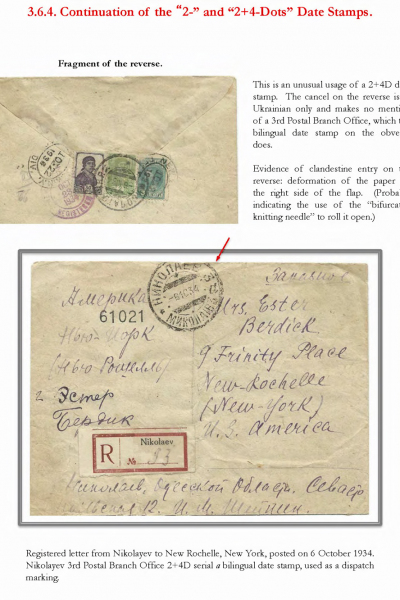 3.6.4. Continuation of the “2-” and “2+4-Dots” Date Stamps.
Fragment of the reverse.
This is an unusual usage of a 2+4D d
stamp. The cancel on the reverse is
Ukrainian only and makes no menti
of a 3rd Postal Branch Office, which t
bilingual date stamp on the obve
does.
Evidence of clandestine entry on t
reverse: deformation of the paper
the right side of the flap. (Probab
indicating the use of the “bifurcat
knitting needle” to roll it open.)
Заказное
Америка
61021
Нью-Йорк
Нью-Рошелль
Эстер
Бердик
НИКОЛАЕВ
МИКОЛАЇВ
Mrs. Ester
Berdick
9 Trinity Place
New-Rochelle
(New-York)
U.S. America
R
Nikolaev
№ 33
Николаев, Одесской Области.
12. И. М.
Registered letter from Nikolayev to New Rochelle, New York, posted on 6 October 1934.
Nikolayev 3rd Postal Branch Office 2+4D serial a bilingual date stamp, used as a dispatch
marking.